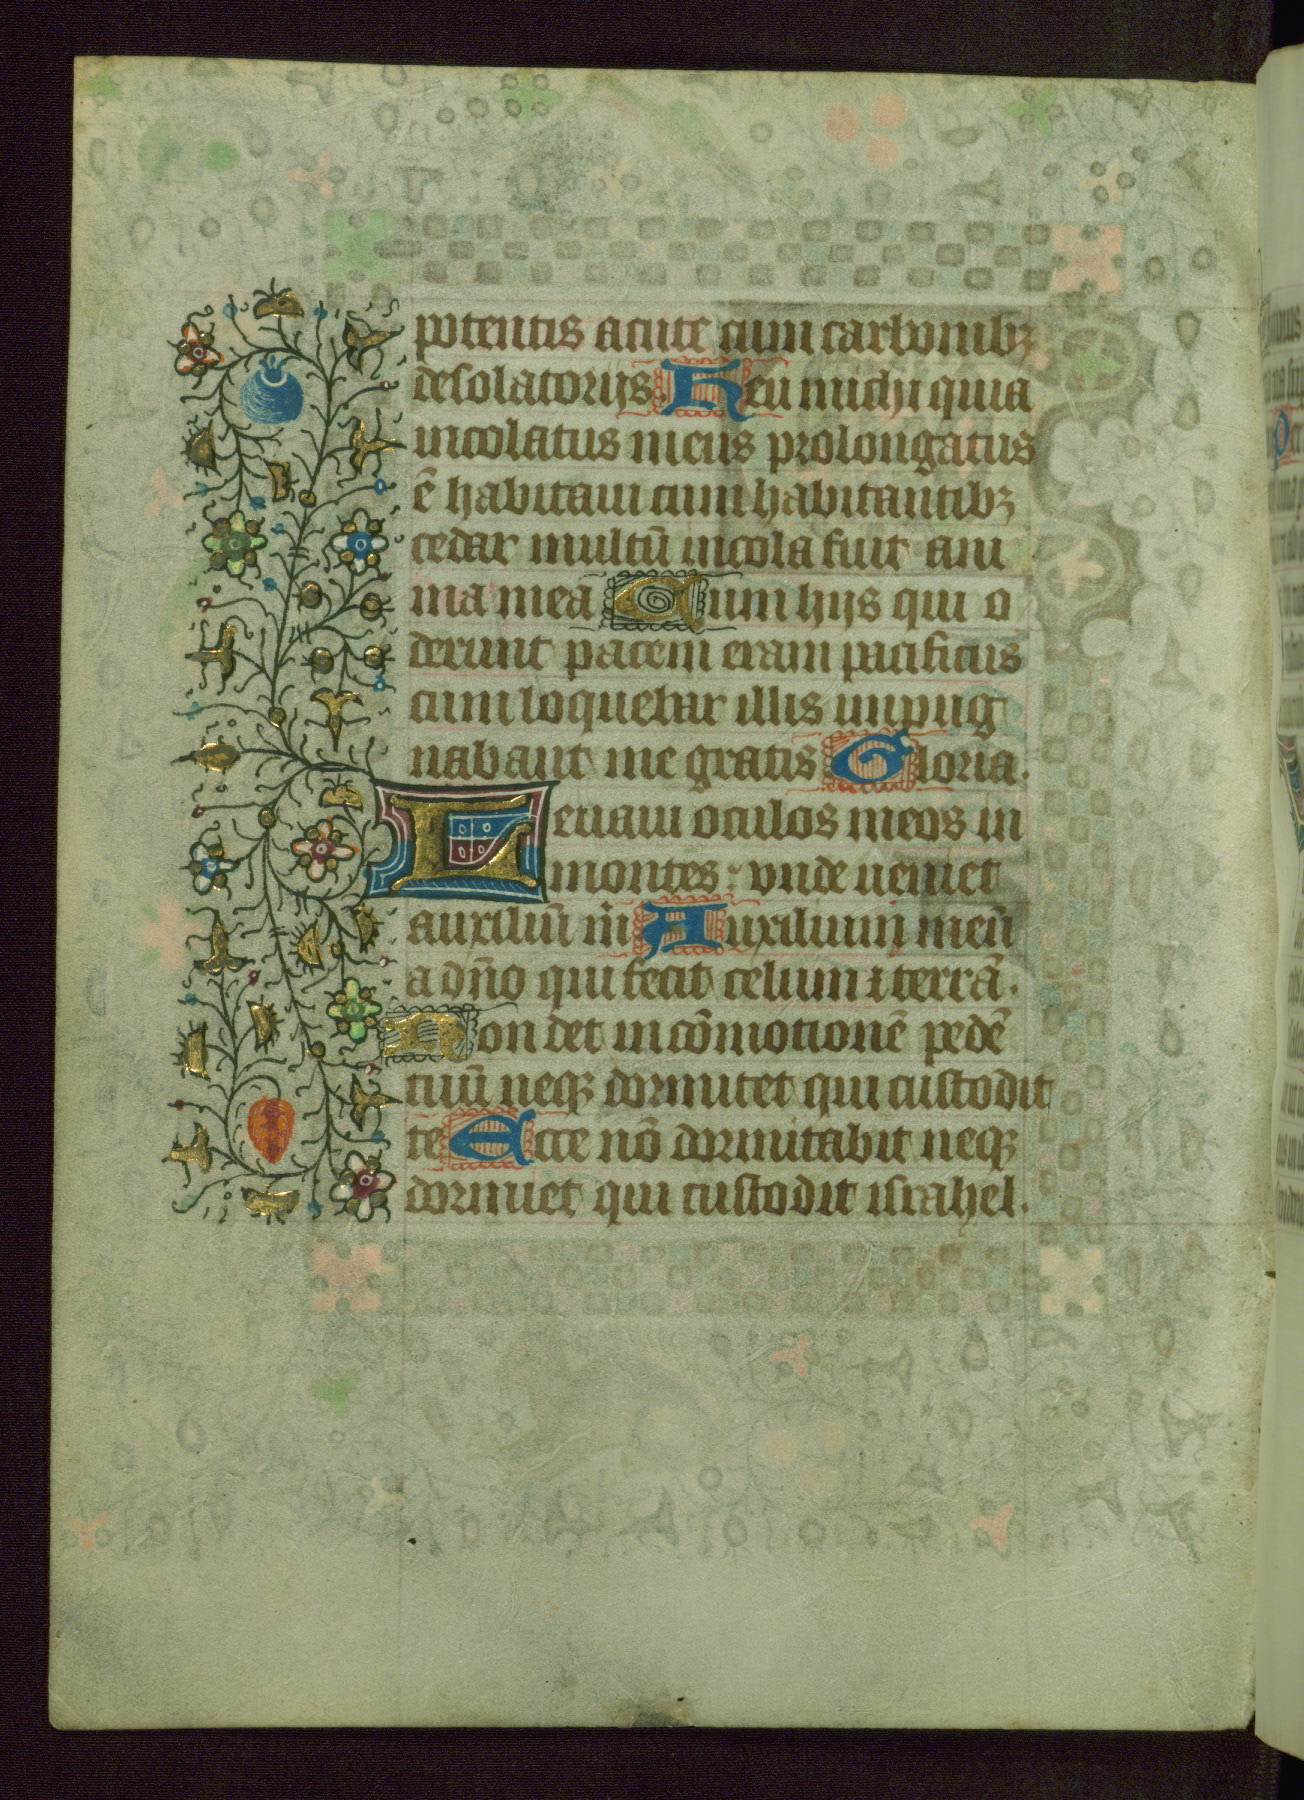 potentis acute cum carbonibȝ
desolatorijs. Heu michi quia
incolatus meus prolongatus
ē habitaui cum habitantibȝ
cedar multū incola fuit ani
ma mea Cum hijs qui o
derunt pacem eram pacificus
cum loquebar illis inpug
nabant me gratis Gloria.
Leuaui oculos meos in
montes: vnde ueniet
auxiliū m̄ Auxilium meū
a dn̄o qui fecit celum ⁊ terrā.
Non det in cōmotionē pedē
tuū neqȝ dormitet qui custodit
te Ecce nō dormitabit neqȝ
dormiet qui custodit israhel.